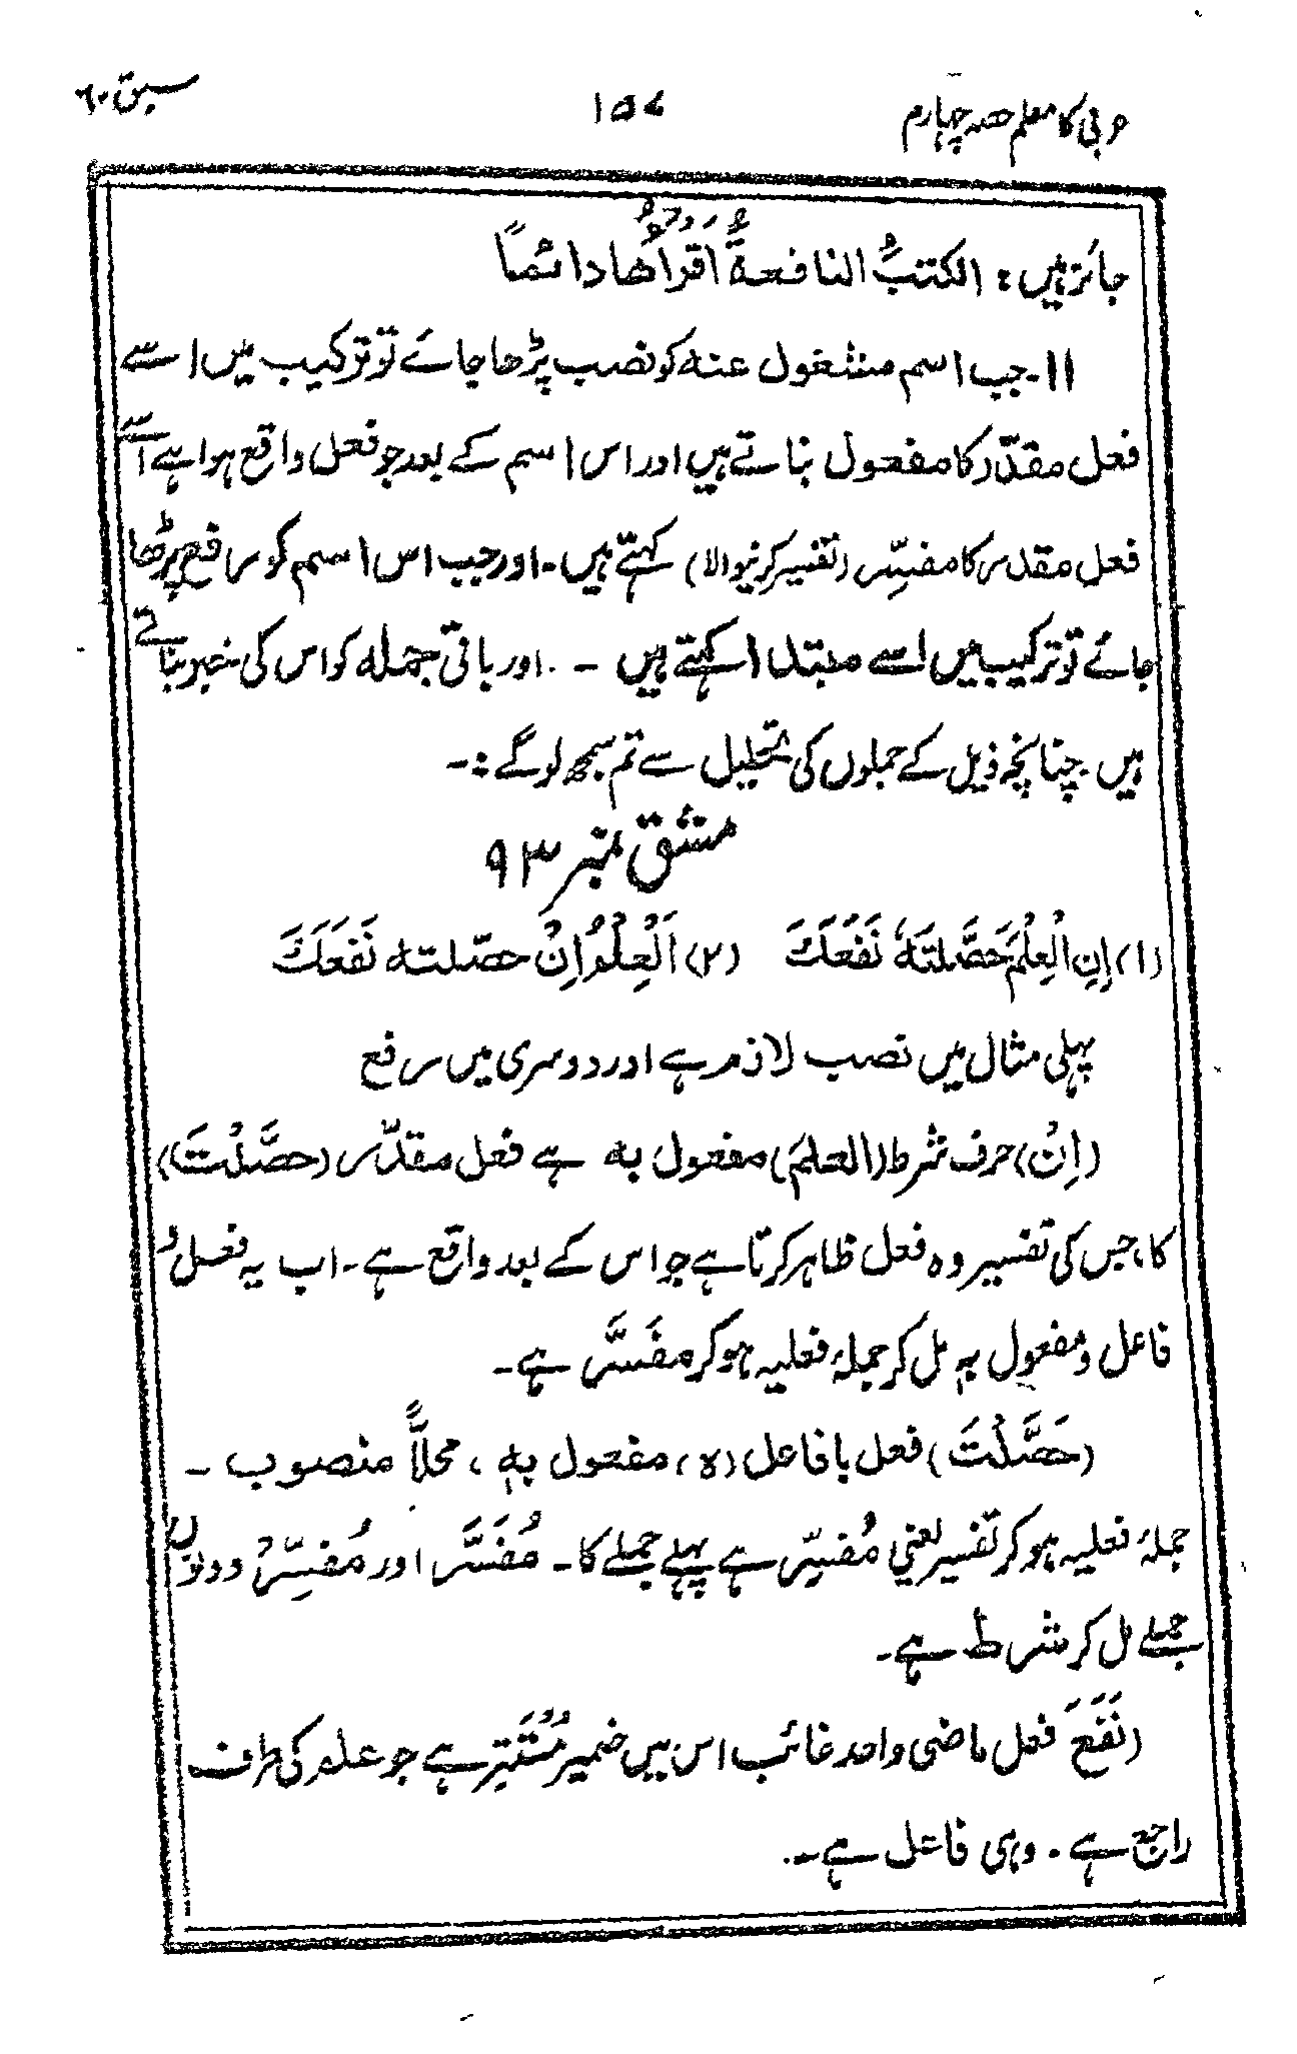 عربی کا معلم حصہ چہارم
۱۵۷
سبق ۶۰
جائز ہیں: الکتبُ النافعةُ اَقرَأُھا دائمًا
۱۱۔ جب اسم مشغول عنہ کو نصب پڑھا جائے تو ترکیب میں اسے
فعل مقدّر کا مفعول بناتے ہیں اور اس اسم کے بعد جو فعل واقع ہوا ہے اسے
فعل مقدر کا مفسِّر (تفسیر کرنیوالا) کہتے ہیں۔ اور جب اس اسم کو رفع پڑھا
جائے تو ترکیب میں اسے مبتدا کہتے ہیں ۔ اور باقی جملہ کو اس کی خبر بناتے
ہیں۔ چنانچہ ذیل کے جملوں کی تحلیل سے تم سمجھ لو گے:۔
مشق نمبر ۹۳
(۱) اِنِ الْعِلْمَ حَصَّلتَهٗ نَفَعَكَ (۲) اَلْعِلْمُ اِنْ حصّلته نَفَعَكَ
پہلی مثال میں نصب لازم ہے اور دوسری میں رفع
(اِنْ) حرف شرط (العلمَ) مفعول بہ ہے فعل مقدّر (حصَّلْتَ)
کا، جس کی تفسیر وہ فعل ظاہر کرتا ہے جو اس کے بعد واقع ہے۔ اب یہ فعل و
فاعل و مفعول بہ مل کر جملۂ فعلیہ ہو کر مفَسَّر ہے۔
(حَصَّلْتَ) فعل با فاعل (ہ) مفعول بہ، محلاًّ منصوب ۔
جملۂ فعلیہ ہو کر تفسیر یعنی مُفسِّر ہے پہلے جملے کا۔ مُفَسَّر اور مُفسِّرْ دونوں
جملے مل کر شرط ہے۔
(نَفَعَ فعل ماضی واحد غائب اس میں ضمیر مُسْتَتِر ہے جو علم کی طرف
راجع ہے۔ وہی فاعل ہے۔